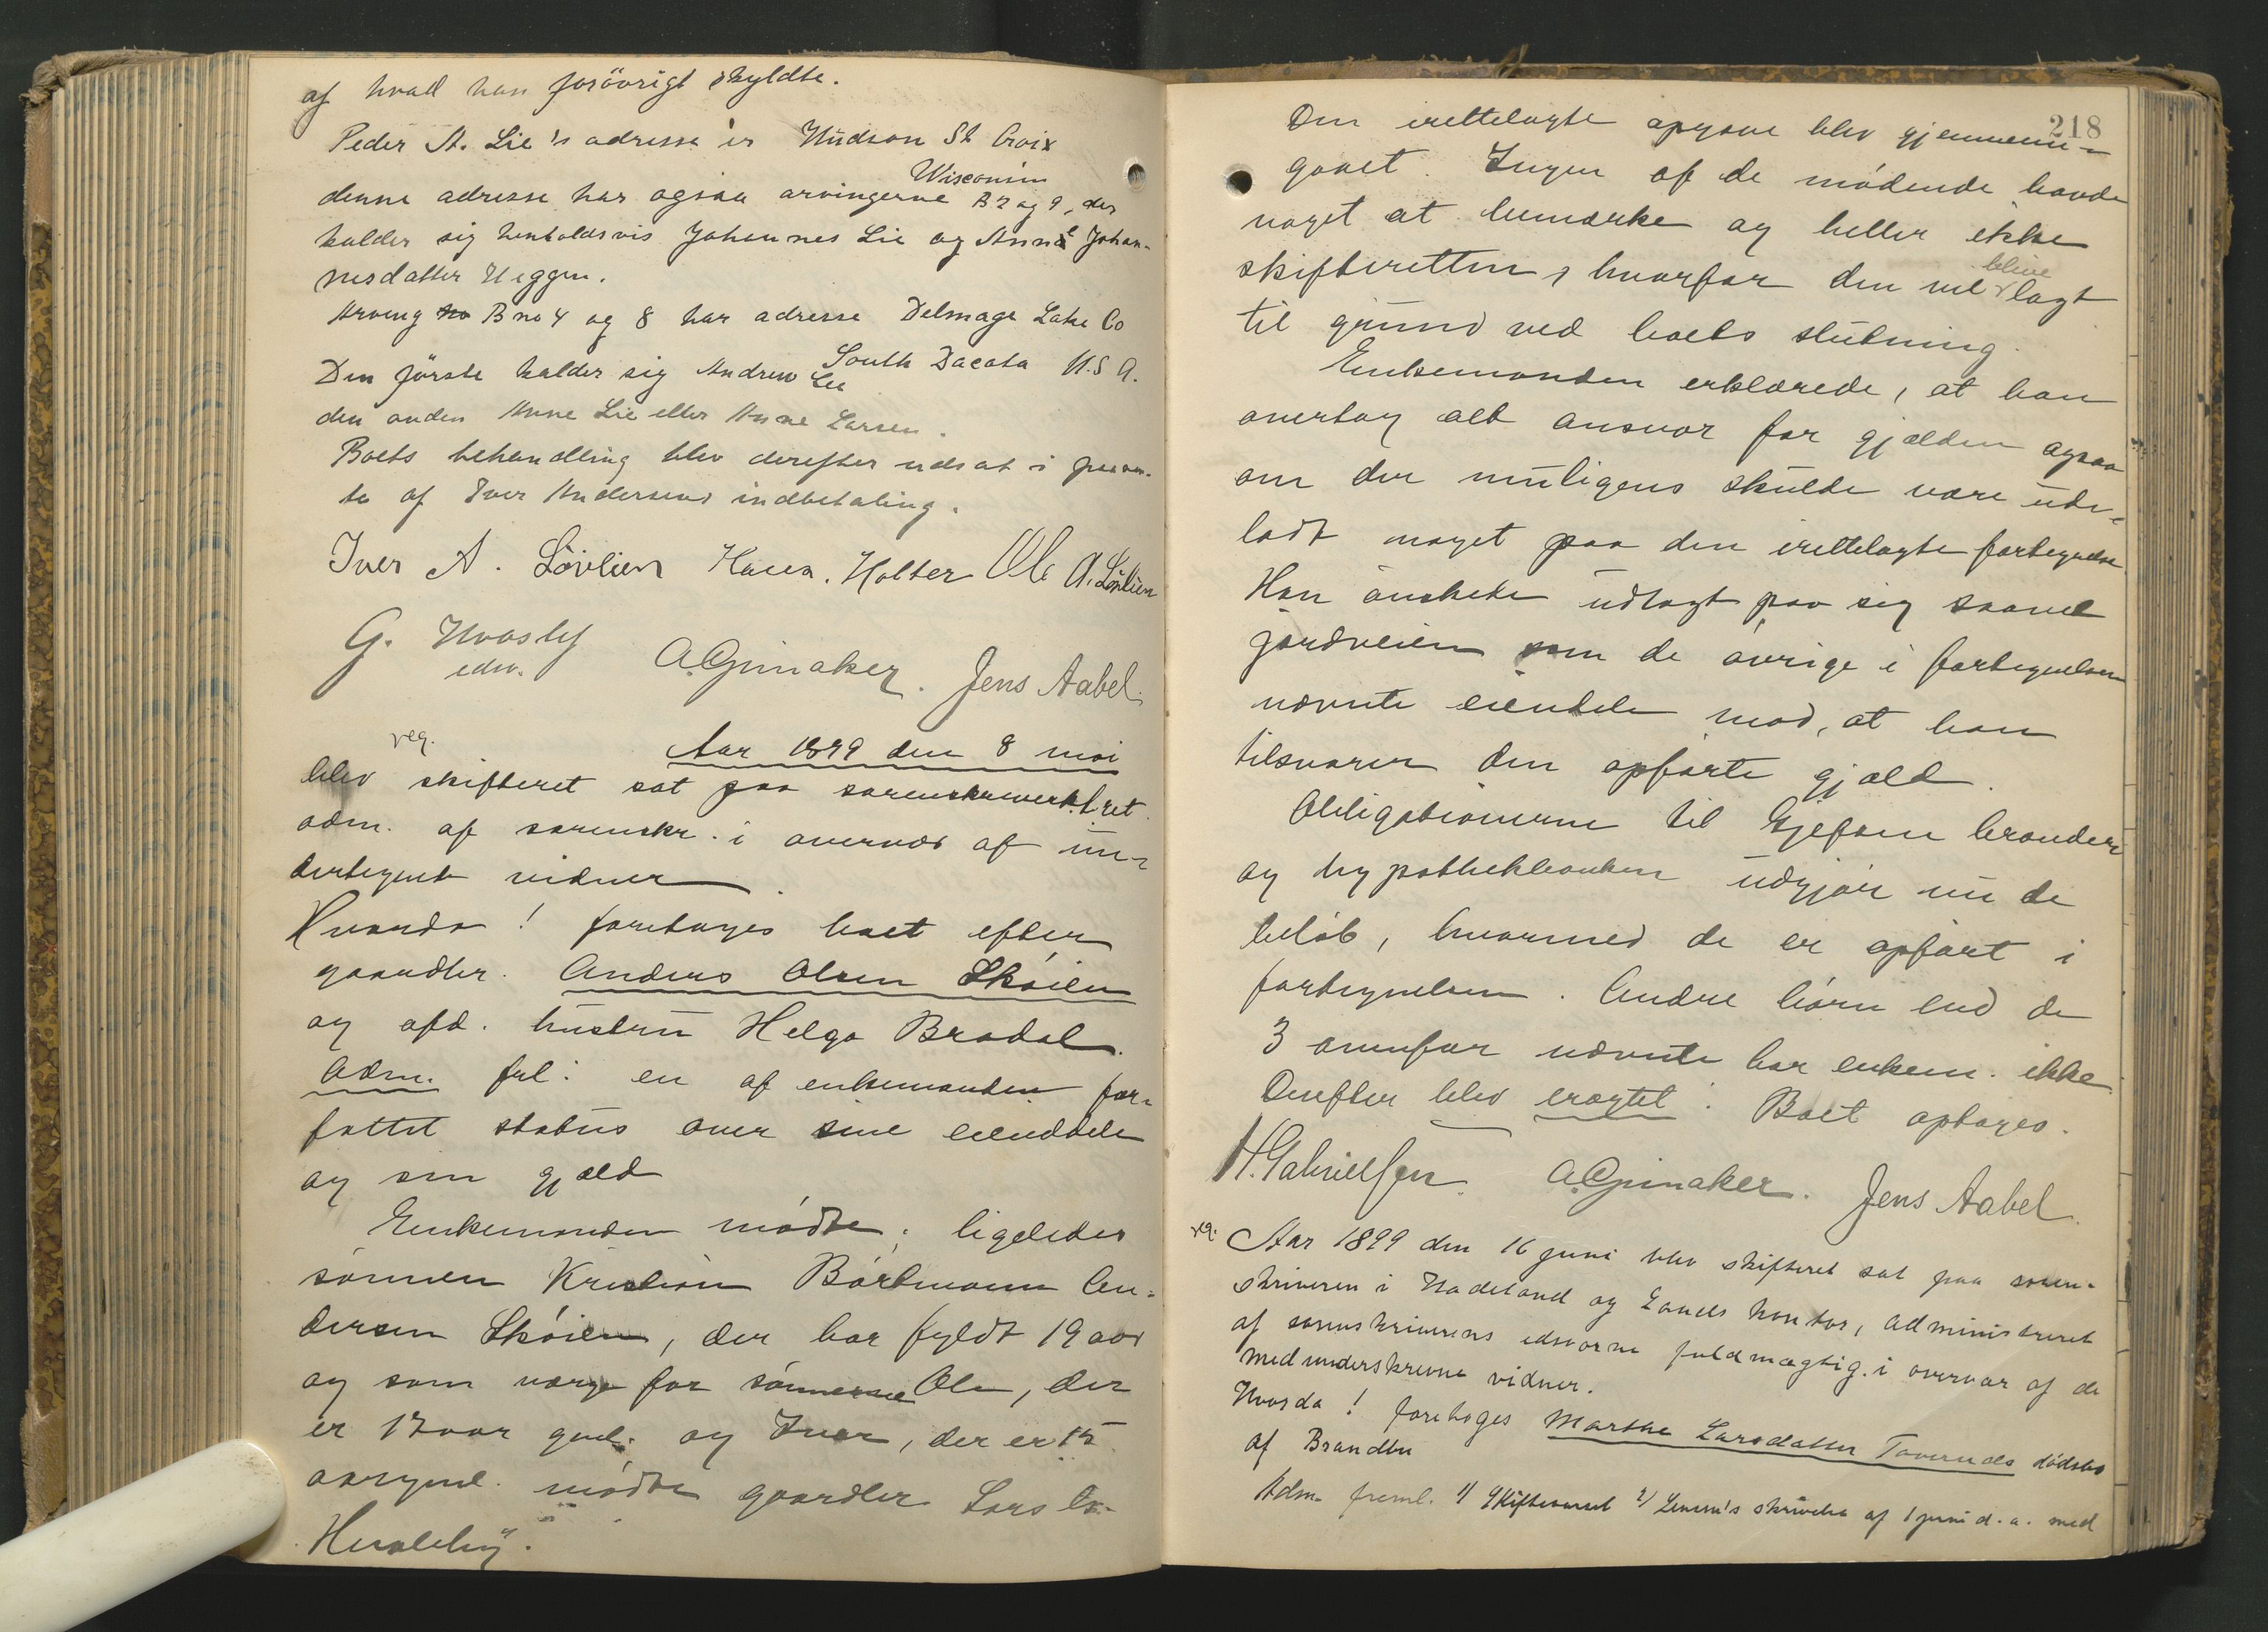 af hvad han forövrigt skyldte.
Peder A. Lie's adresse er Hudson St Croix
Wisconsin
denne adresse har ogsaa arvingerne B 2 og 9, der
kalder sig henholdsvis Johannes Lie og Anne Johan-
nesdatter Heggen.
Arving B no 4 og 8 har adresse Delmage Lake Co
South Dacota U.S A.
Den förste kalder sig Andrew Lee
den anden Anne Lie eller Anne Larsen.
Boets behandling blev derefter udsat i paaven-
te af Iver Andersens indbetaling.
Iver A. Lövlien Hans. Holter Ole A. Lövlien
G. Hvasly A. Grinaker. Jens Aabel.
edsv.
reg.
Aar 1899 den 8 mai
blev skifteret sat paa sorenskriverk.tret
adm. af sorenskr. i overvær af un-
dertegnede vidner
Hvorda! foretoges boet efter
gaardbr. Anders Olsen Skøien
og afd. hustru Helga Bradal.
Adm. frl: en af enkemanden for-
fattet status over sine eiendele
og sin gjæld
Enkemanden mødte; ligeledes
sønnen Kristian Bårtmann An-
dersen Skøien, der har fyldt 19 aar
og som værge for sønnerne Ole, der
er 17 aar gml. og Iver, der er 15
aar gml. mødte gaardbr Lars
Hvaleby.
218
Den irettelagte opgave blev gjennem-
gaaet. Ingen af de mødende havde
noget at bemærke og heller ikke
skifteretten, hvorfor den vil blive lagt
til grund ved boets slutning.
Enkemanden erklærede, at han
overtog alt ansvar for gjælden ogsaa
om der muligens skulde være ude-
ladt noget paa den irettelagte fortegnelse.
Han ønskede udlagt paa sig saavel
jordveien som de øvrige i fortegnelsen
nævnte eiendele mod, at han
tilsvarer den opførte gjæld.
Obligationerne til Gjefsen brænderi
og hypothekbanken udgjør nu de
beløb, hvormed de er opført i
fortegnelsen. Andre børn end de
3 ovenfor nævnte har enkem. ikke.
Derefter blev eragtet: Boet optages.
H. Gabrielsen. A. Grinaker. Jens Aabel.
reg.
Aar 1899 den 16 juni blev skifteret sat paa soren-
skriveren i Hadeland og Lands kontor, administreret
af sorenskriverens edsvorne fuldmægtig i overvær af de
medunderskrevne vidner.
Hvorda! foretoges Marthe Larsdatter Taverudes dödsbo
af Brandbu
Adm. freml. 1) Skifteanmel 2) Lensm's skrivelse af 1 juni d. a. med